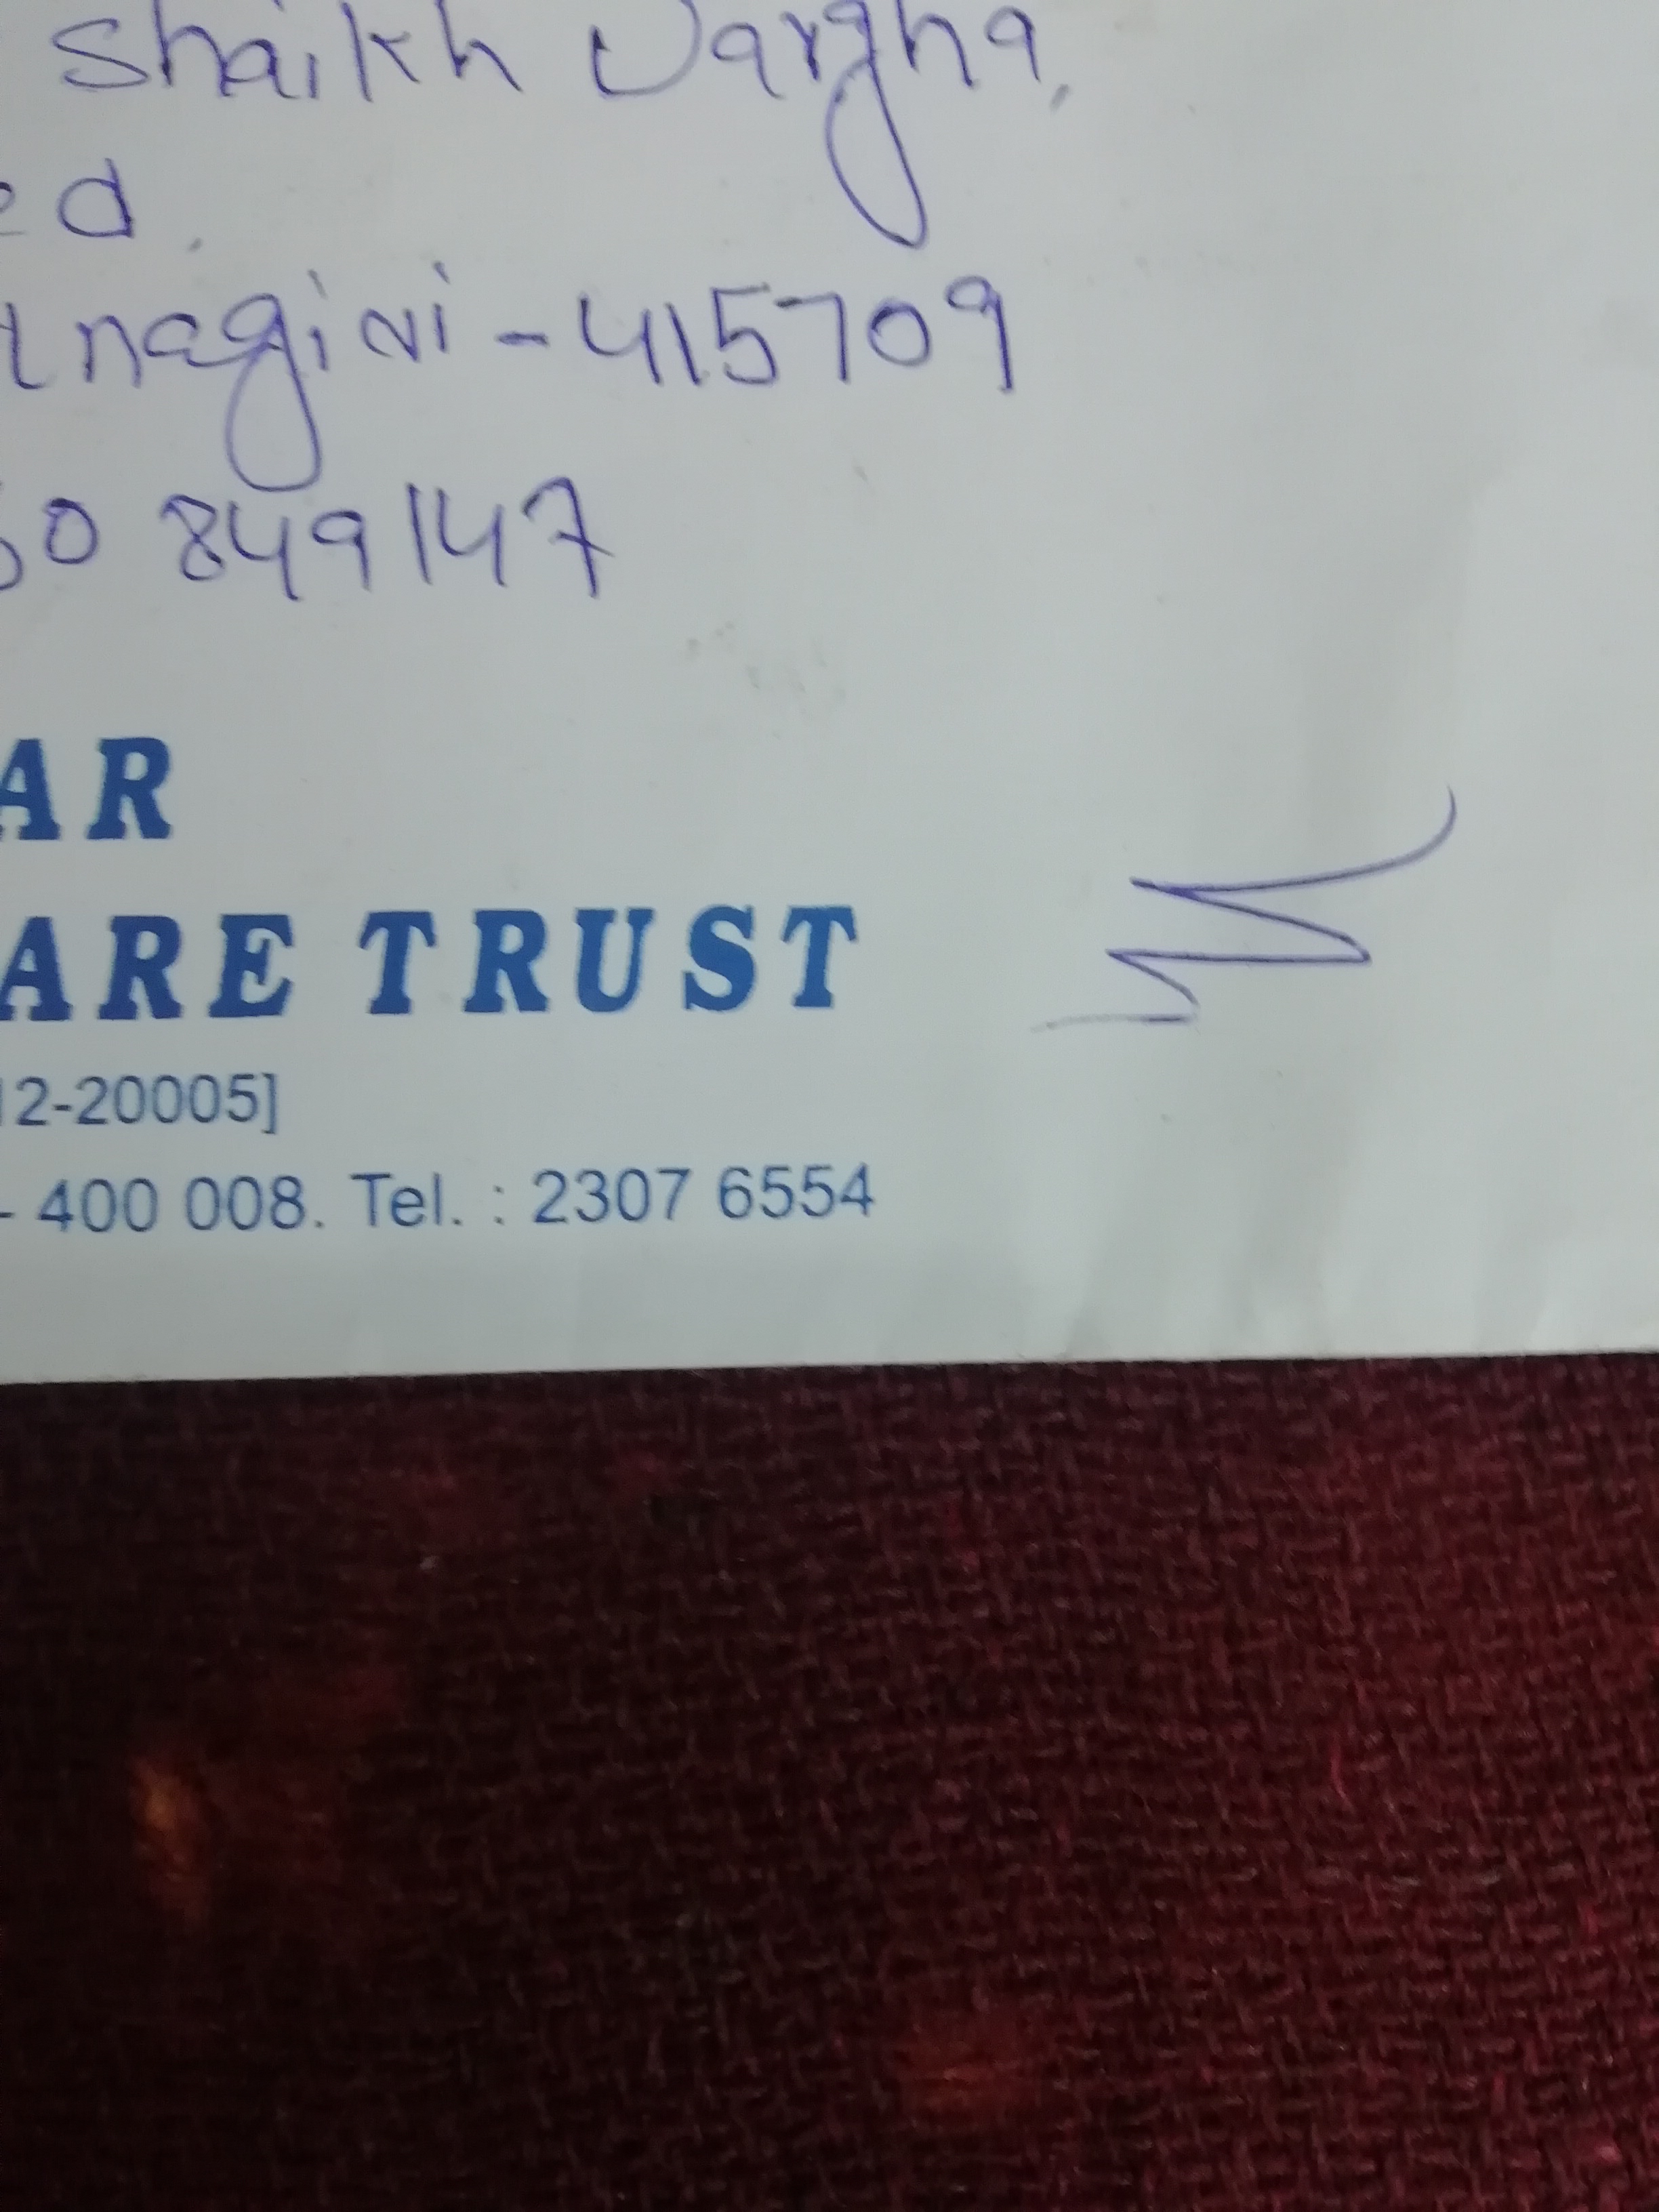 Shaikh Dargha,
ed.
tnagiri - 415709
50 849147
AR
ARE TRUST
12-20005]
- 400 008. Tel. : 2307 6554